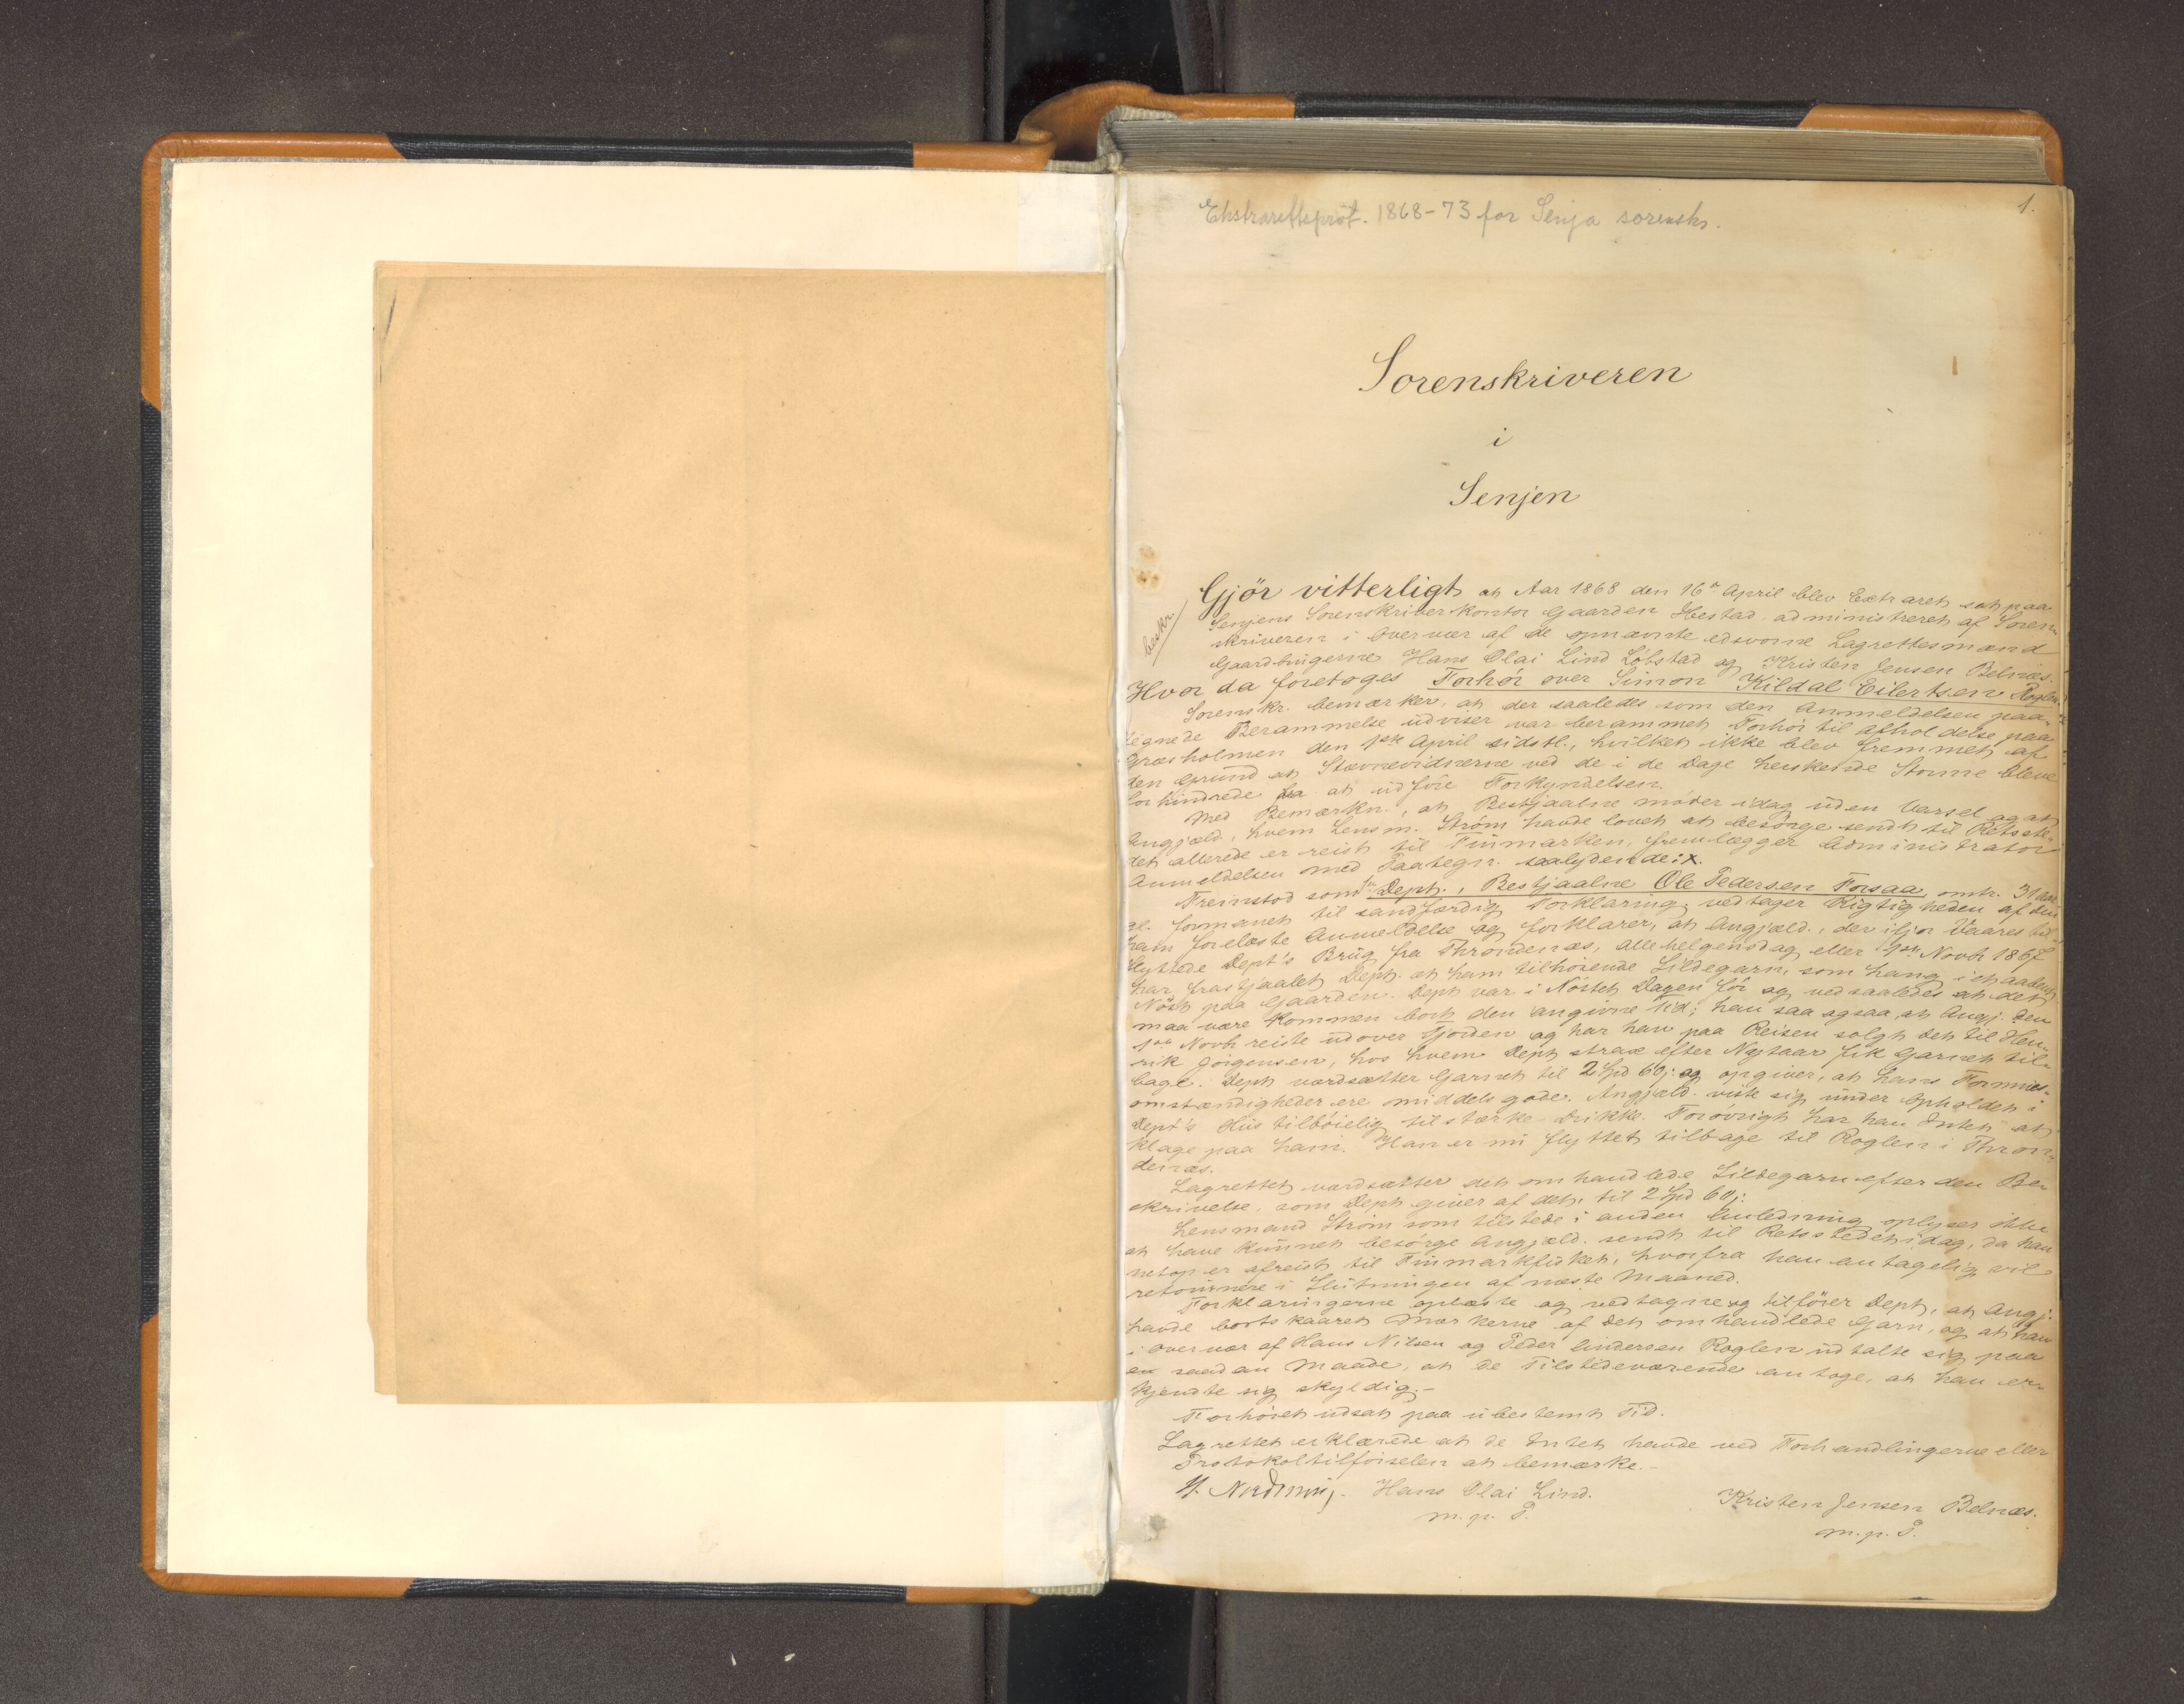 Ekstrarettsprot. 1868-73 for Senja sorenskr.
1.
Sorenskriveren
i
Senjen
beskr.
Gjör vitterligt at Aar 1868 den 16de April blev Extraret sat paa
Senjens Sorenskriverkontor Gaarden Ibestad administreret af Soren-
skriveren i Overvær af de opnævnte edsvorne Lagrettesmænd
Gaardbrugerne Hans Olai Lind Löbstad og Kristen Jensen Belnæs.
Hvor da foretoges Forhör over Simon Kildal Eilertsen Roglen.
Sorenskr. bemærker, at der saaledes som den Anmeldelsen paa-
tegnede Berammelse udviser var berammet Forhör til Afholdelse paa
Græsholmen den 1ste April sidstl., hvilket ikke blev fremmet af
den Grund at Stævnevidnerne ved de i de Dage herskende Storme bleve
forhindrede fra at udföre Forkyndelsen.
Med Bemærkn., at Bestjaalne möder idag uden Varsel og at
Angjæld., hvem Lensm. Ström havde lovet at besörge sendt til Retsste-
det allerede er reist til Finmarken, fremlægger Administrator
Anmeldelsen med Paategn. saalydende: x.
Fremstod som 1ste Dept., Bestjaalne Ole Pedersen Forsaa, omtr. 31 Aar
gl. formanet til sandfærdig Forklaring; vedtager Rigtigheden af den
ham forelæste Anmeldelse og forklarer, at Angjæld., der ifjor Vaares til-
flyttede Dept's Brug fra Throndenæs, Allehelgensdag eller 1ste Novbr 1867
har frastjaalet Dept. et ham tilhörende Sildegarn, som hang i et aabent
Nöst paa Gaarden. Dept. var i Nöstet Dagen för og ved saaledes at det
maa være kommen bort den angivne Tid; han saa ogsaa, at Angj. den
1ste Novbr reiste udover Fjorden og har han paa Reisen solgt det til Hen-
rik Jörgensen, hos hvem Dept. strax efter Nytaar fik Garnet til-
bage. Dept. værdsætter Garnet til 2 Spd 60 s og opgiver, at hans Formues-
omstændigheder ere middels gode. Angjæld. viste sig under Opholdet i
Dept's Hus tilböielig til stærke Drikke. Forövrigt har han Intet at
klage paa ham. Han er nu flyttet tilbage til Roglen i Thron-
denæs.
Lagrettet værdsætter det omhandlede Sildegarn efter den Be-
skrivelse, som Dept. giver af det, til 2 Spd 60 s.
Lensmand Ström som tilstede i anden Anledning oplyser ikke
at have kunnet besörge Angjæld. sendt til Retsstedet idag, da han
netop er afreist til Finmarkfisket, hvorfra han antagelig vil
retournere i Slutningen af næste Maaned.
Forklaringerne oplæste og vedtagne og tilföier Dept., at Angj.
havde bortskaaret Mærkerne af det omhandlede Garn, og at han
i Overvær af Hans Nilsen og Peder Andersen Roglen udtalte sig paa
en saadan Maade, at de Tilstedeværende antoge, at han er-
kjendte sig skyldig.-
Forhöret udsat paa ubestemt Tid.
Lagrettet erklærede at de Intet havde ved Forhandlingerne eller
Protokoltilförselen at bemærke.-
Hans Olai Lind.
m. p. P.
Kristen Jensen Belnæs.
m. p. P.